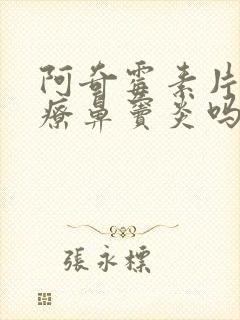 阿奇霉素片
疗鼻窦炎吗
張永標